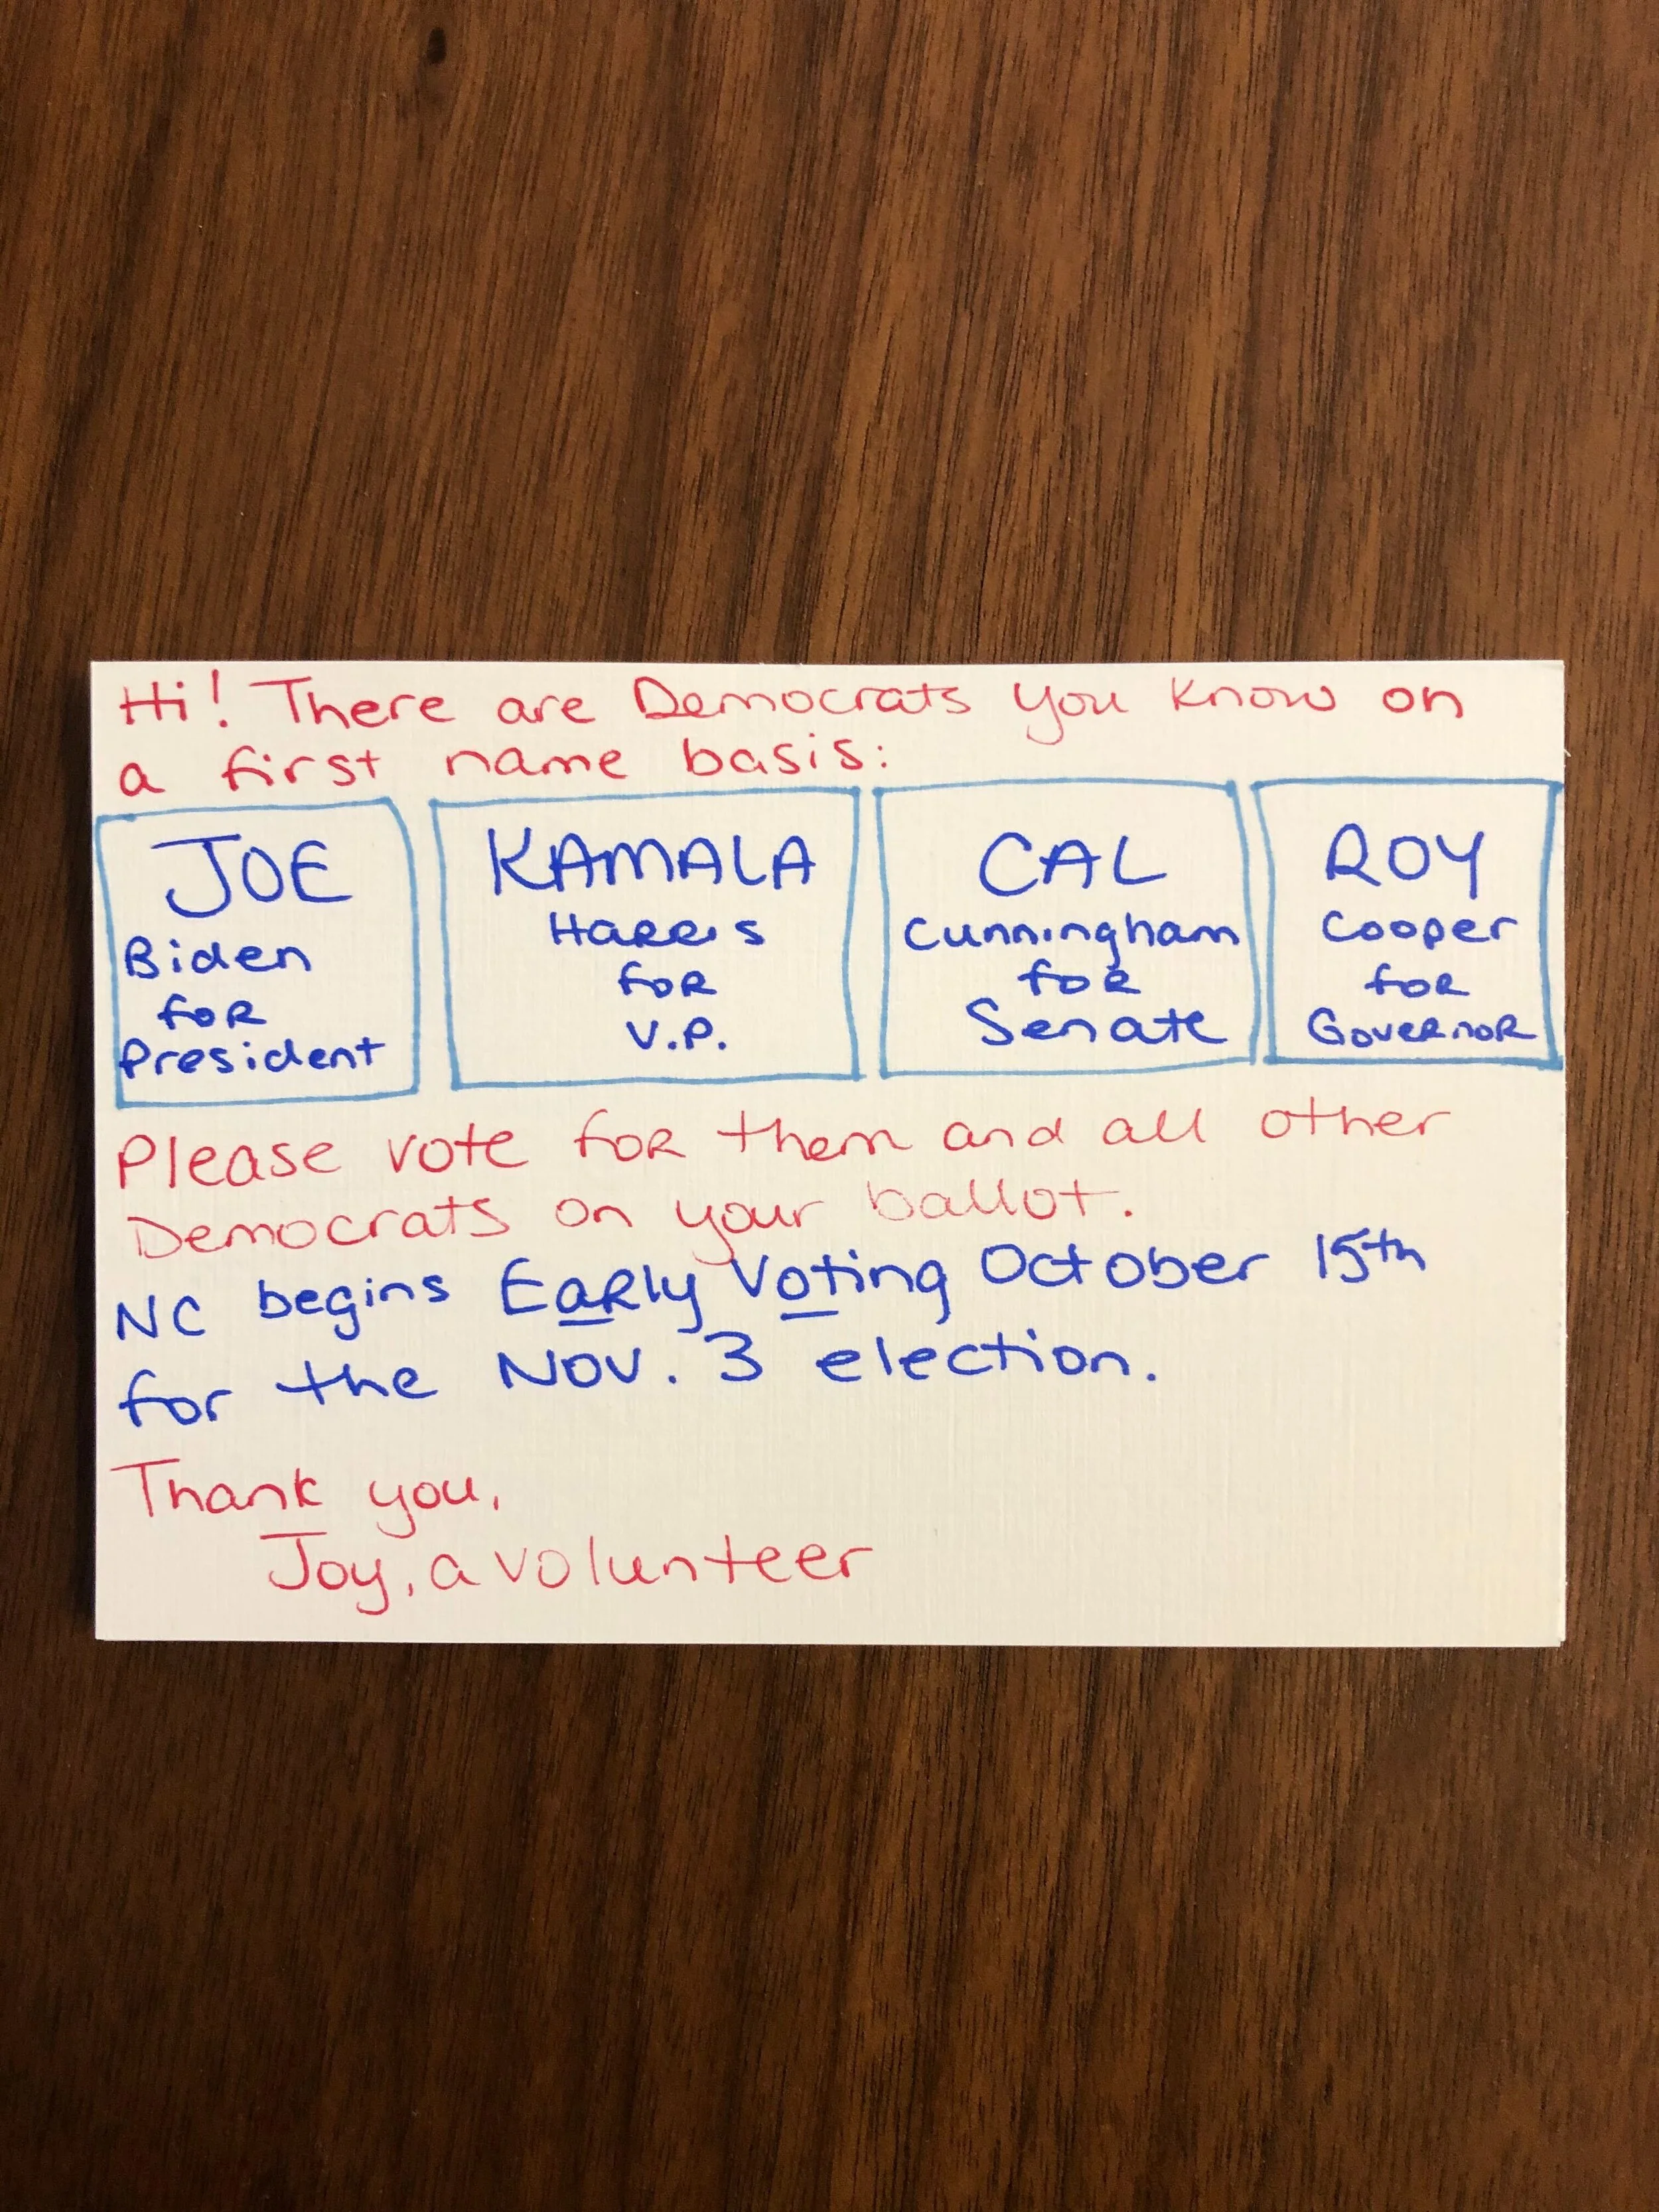 Hi! There are Democrats you know on
a first name basis:
JOE
Biden
for
President
KAMALA
Harris
for
V.P.
CAL
Cunningham
for
Senate
ROY
Cooper
for
Governor
Please vote for them and all other
Democrats on your ballot.
NC begins Early Voting October 15th
for the Nov. 3 election.
Thank you,
Joy, a volunteer